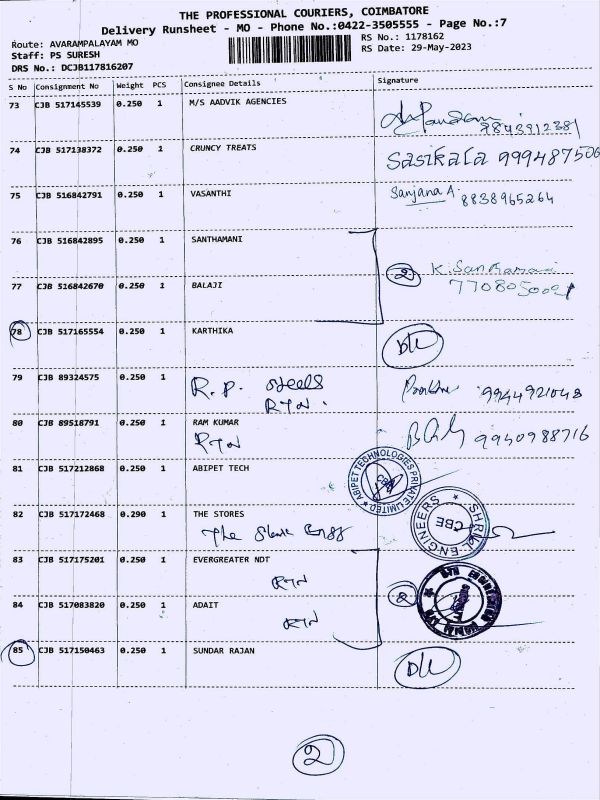 THE PROFESSIONAL COURIERS, COIMBATORE
Delivery Runsheet - MO - Phone No.:0422-3505555 - Page No.:7
Route: AVARAMPALAYAM MO
RS No.: 1178162
Staff: PS SURESH
RS Date: 29-May-2023
DRS No.: DCJB117816207
S No Consignment No Weight PCS Consignee Details Signature
73 CJB 517145539 0.250 1 M/S AADVIK AGENCIES
74 CJB 517138372 0.250 1 CRUNCY TREATS Sasikala 999487506
75 CJB 516842791 0.250 1 VASANTHI Sanjana A 8838965264
76 CJB 516842895 0.250 1 SANTHAMANI
2
77 CJB 516842670 0.250 1 BALAJI
78 CJB 517165554 0.250 1 KARTHIKA
79 CJB 89324575 0.250 1 R.P. steels 9944921048
RTN.
80 CJB 89518791 0.250 1 RAM KUMAR 9940988716
RTN
81 CJB 517212868 0.250 1 ABIPET TECH
ABIPET TECHNOLOGIES PRIVATE LIMITED
82 CJB 517172468 0.290 1 THE STORES
ENGINEERS
CBE
83 CJB 517175201 0.250 1 EVERGREATER NDT
RTN
84 CJB 517083820 0.250 1 ADAIT
RTN
85 CJB 517150463 0.250 1 SUNDAR RAJAN
2